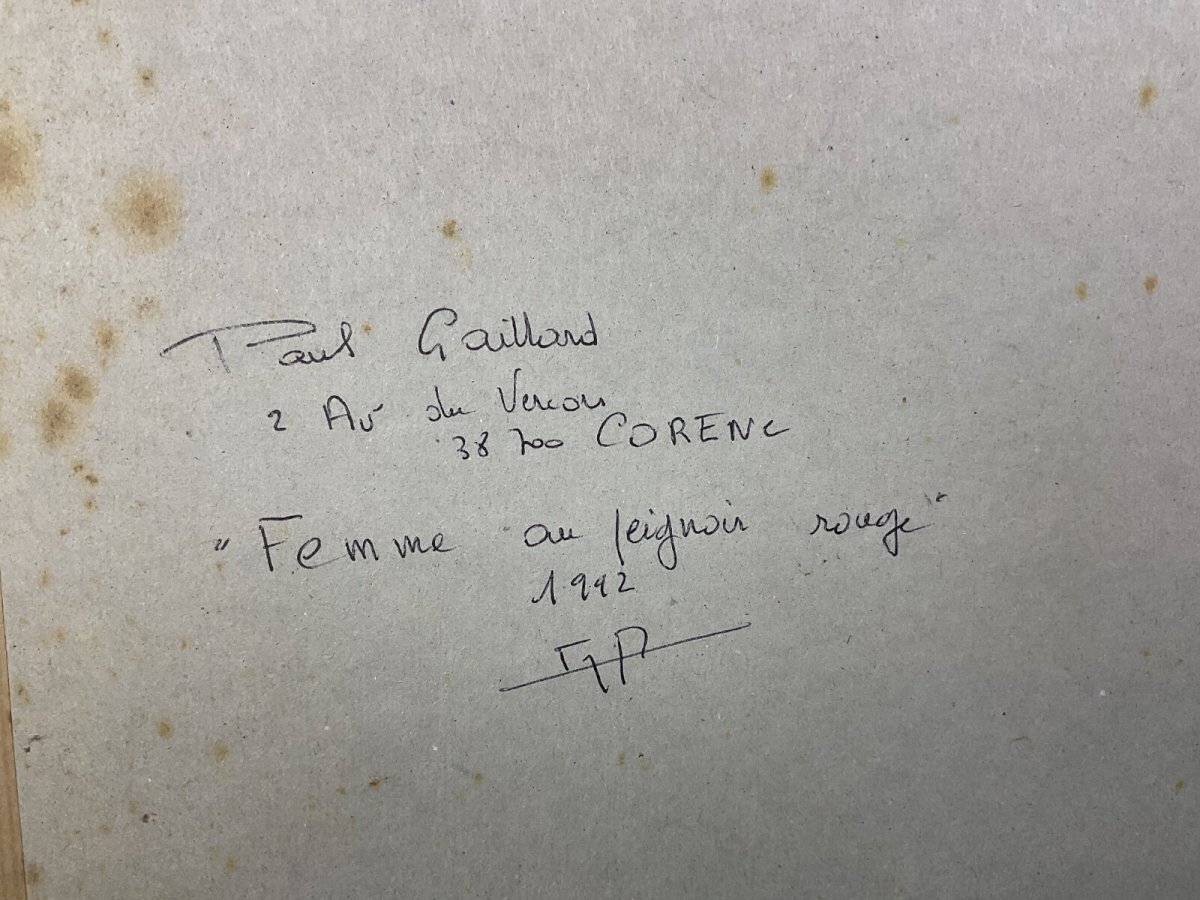 Paul Gaillard
2 Av du Vercors
38 700 CORENC
"Femme au peignoir rouge"
1992